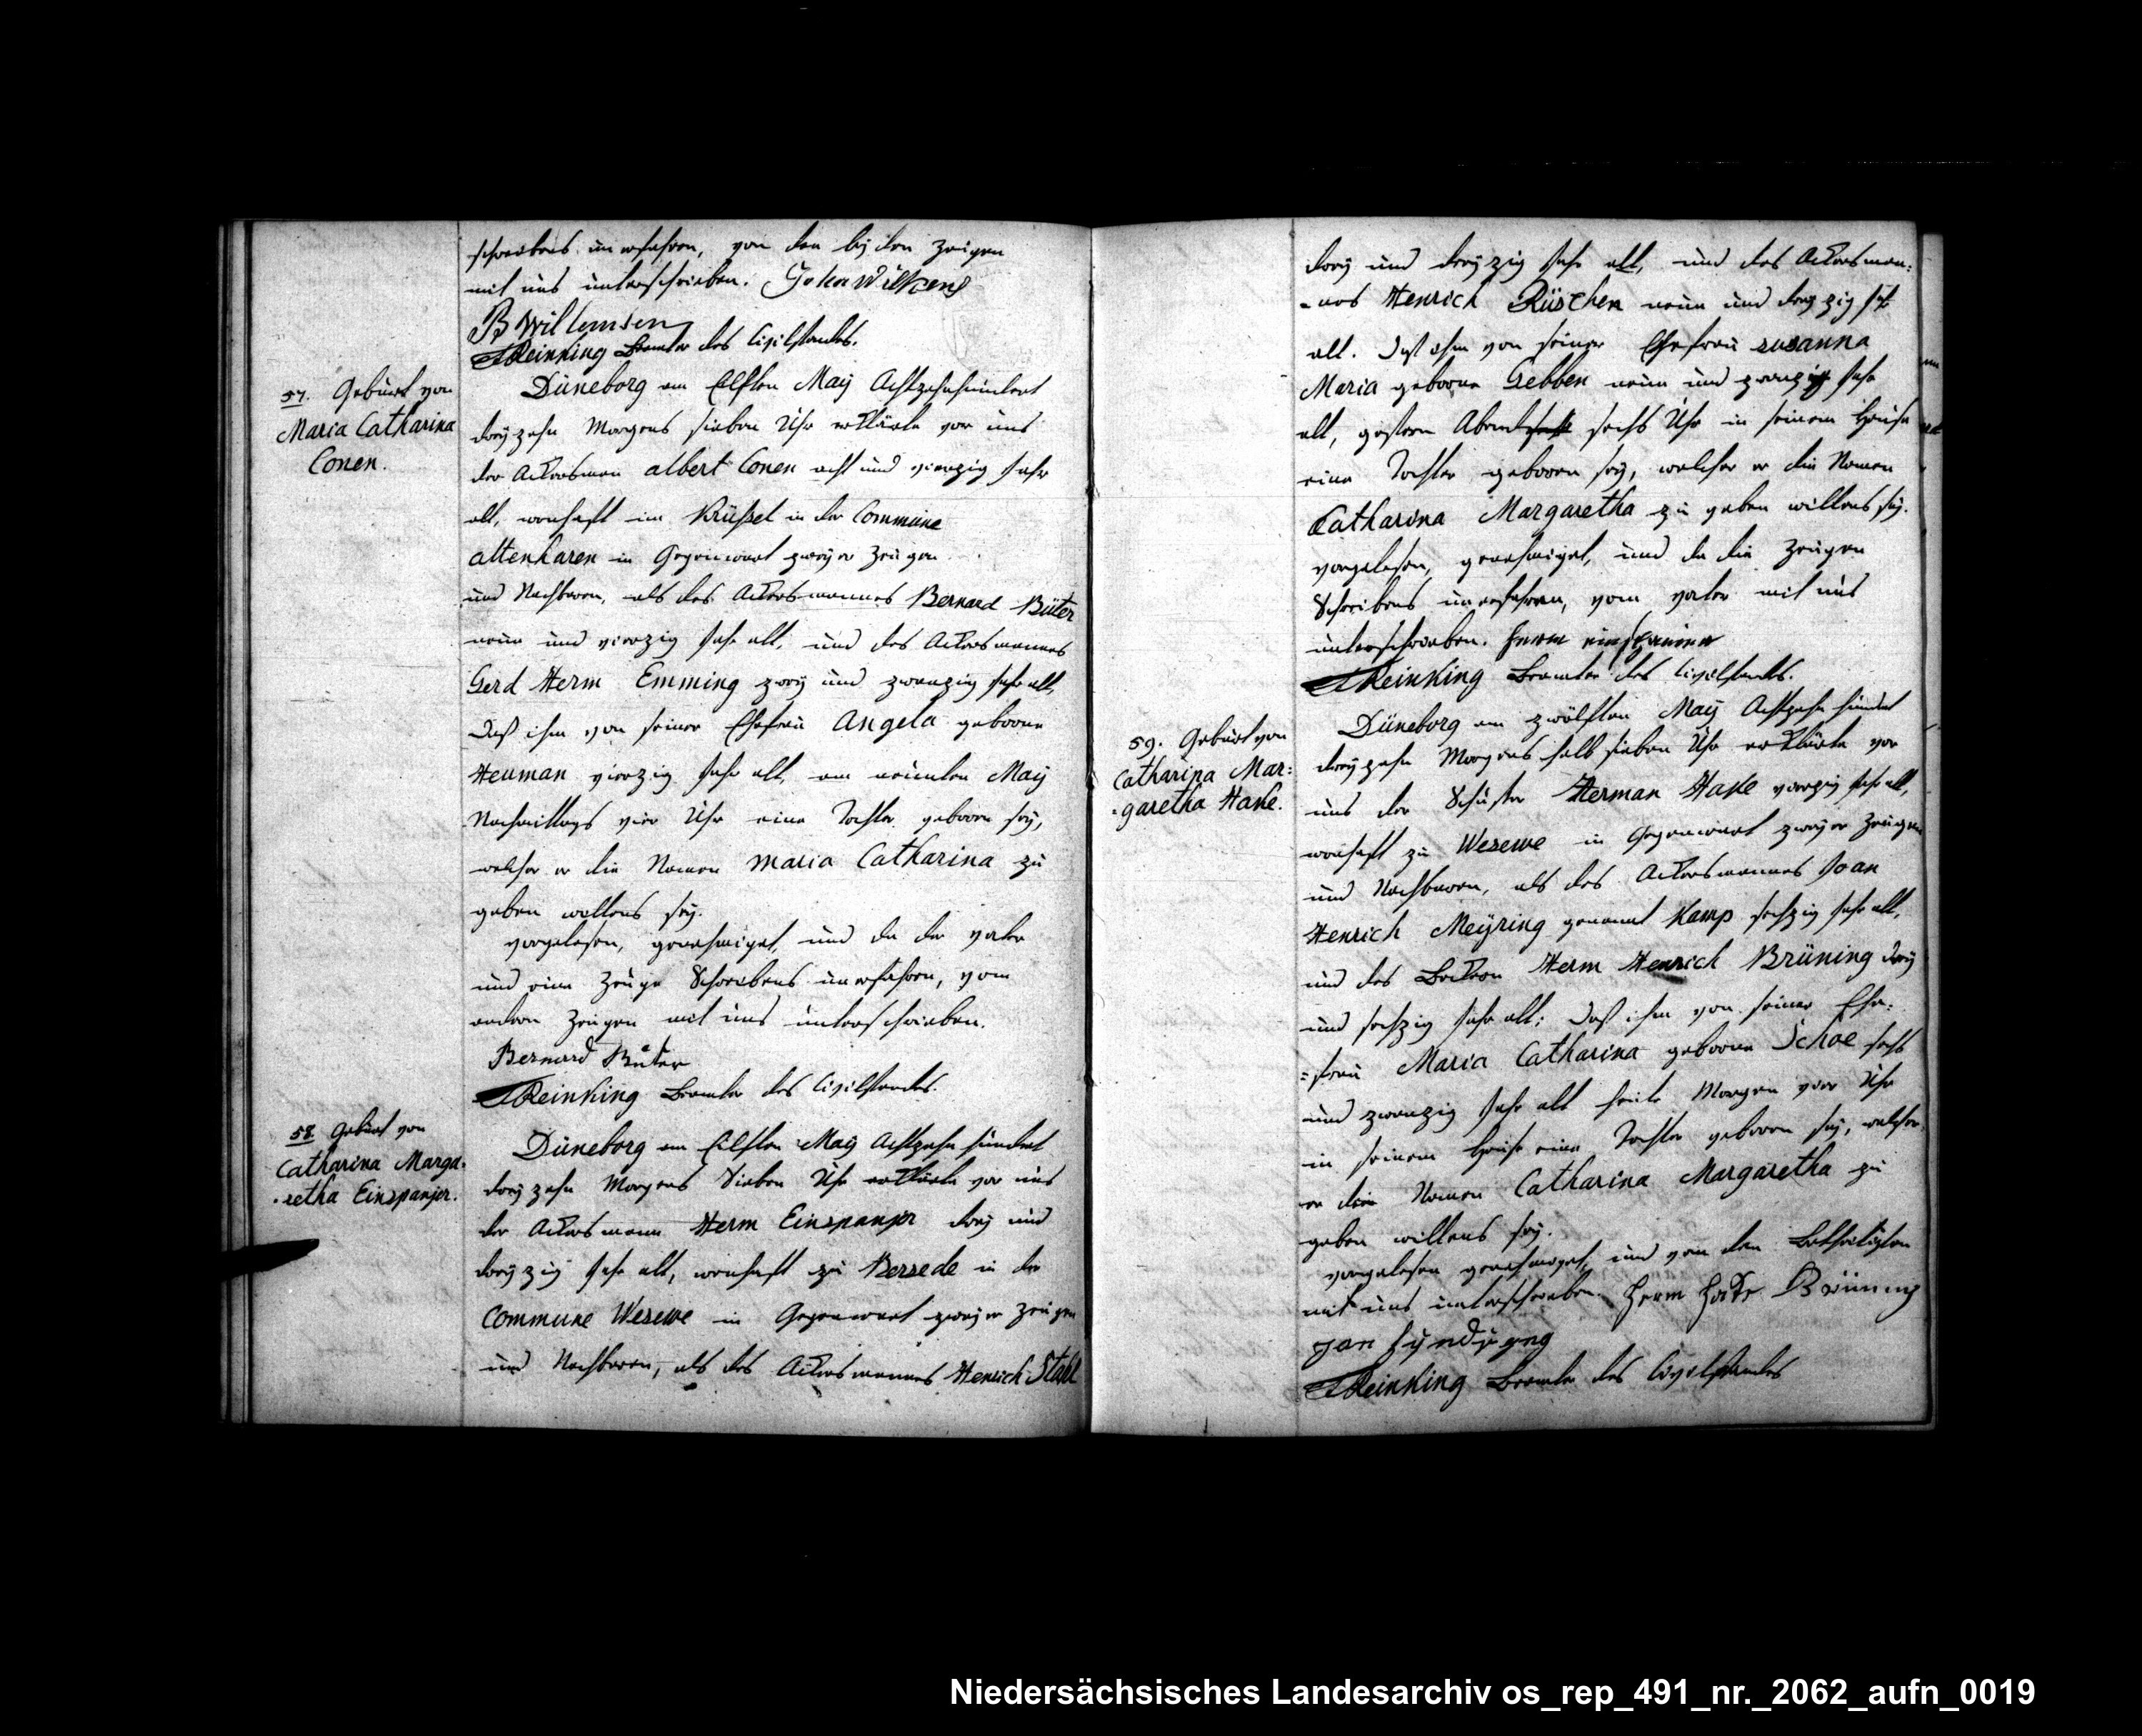 schreibens unerfahren, von den beyden Zeugen
mit uns unterschrieben. Johan Wilkens
B Willemsen
Reinking Beamter des Civilstandes.
57. Geburt von
Maria Catharina
Conen.
Düneborg am Eilften May Achtzehnhundert
dreyzehn Morgens sieben Uhr erklärte vor uns
der Ackersman albert Conen acht und vierzig Jahr
alt, wonhaft im Krüßel in der Commune
altenharen in Gegenwart zweyer Zeugen
und Nachbaren, als des Ackersmannes Bernard Büter
neun und vierzig Jahr alt, und des Ackersmannes
Gerd Herm Emming zwey und zwanzig Jahr alt,
Daß ihm von seiner Ehefrau Angela geborne
Heuman vierzig Jahr alt, am neunten May
Nachmittags vier Uhr eine Tochter geboren sey,
welcher er die Namen Maria Catharina zu
geben wollens sey.
vorgelesen, genehmiget, und da der Vater
und eine Zeuge Schreibens unerfahren, vom
andern Zeugen mit uns unterschrieben.
Bernard Büter
Reinking Beamter des Civilstandes.
58. Geburt von
Catharina Marga-
-retha Einspanjer.
Düneborg am Eilften May Achtzehn hundert
dreyzehn Morgens Sieben Uhr erklärte vor uns
der Ackersmann Herm Einspanjer drey und
dreyzig Jahr alt, wonhaft zu Berssede in der
Commune Wesewe in Gegenwart zweyer Zeugen
und Nachbaren, als des Ackersmannes Henrich Stahl
drey und dreyzig Jahr alt, und des Ackersman:
-nes Henrich Rüschen neun und dreyzig Jahr
alt. Daß ihm von seiner Ehefrau susanna
Maria geborne Gebben neun und zwanzig Jahr
alt, gestern Abend sechs Uhr in seinem Hause
eine Tochter geboren sey, welcher er die Namen
Catharina Margaretha zu geben willens sey.
vorgelesen, genehmiget, und da die Zeugen
Schreibens unerfahren, vom Vater mit uns
unterschrieben. Herm einspanier
Reinking Beamter des Civilstandes.
59. Geburt von
Catharina Mar:
-garetha Hake.
Düneborg am zwölften May Achtzehn hundert
dreyzehn Morgens halb sieben Uhr erklärte vor
uns der Schuster Herman Hake vierzig Jahr alt,
wonhaft zu Wesewe in Gegenwart zweyer Zeugen
und Nachbaren, als des Ackersmannes Joan
Henrich Meÿring genannt Kamp sechzig Jahr alt,
und des Herm Henrich Brüning drey
und sechzig Jahr alt; Daß ihm von seiner Ehe:
=frau Maria Catharina geborne Schoe sechs
und zwanzig Jahr alt heute Morgen vier Uhr
in seinem Hause eine Tochter geboren sey, welcher
er die Namen Catharina Margaretha zu
geben willens sey.
vorgelesen genehmiget, und von den Betheiligten
mit uns unterschrieben. Herm Hake Brüning
Reinking Beamter des Civilstandes
Niedersächsisches Landesarchiv os_rep_491_nr._2062_aufn_0019